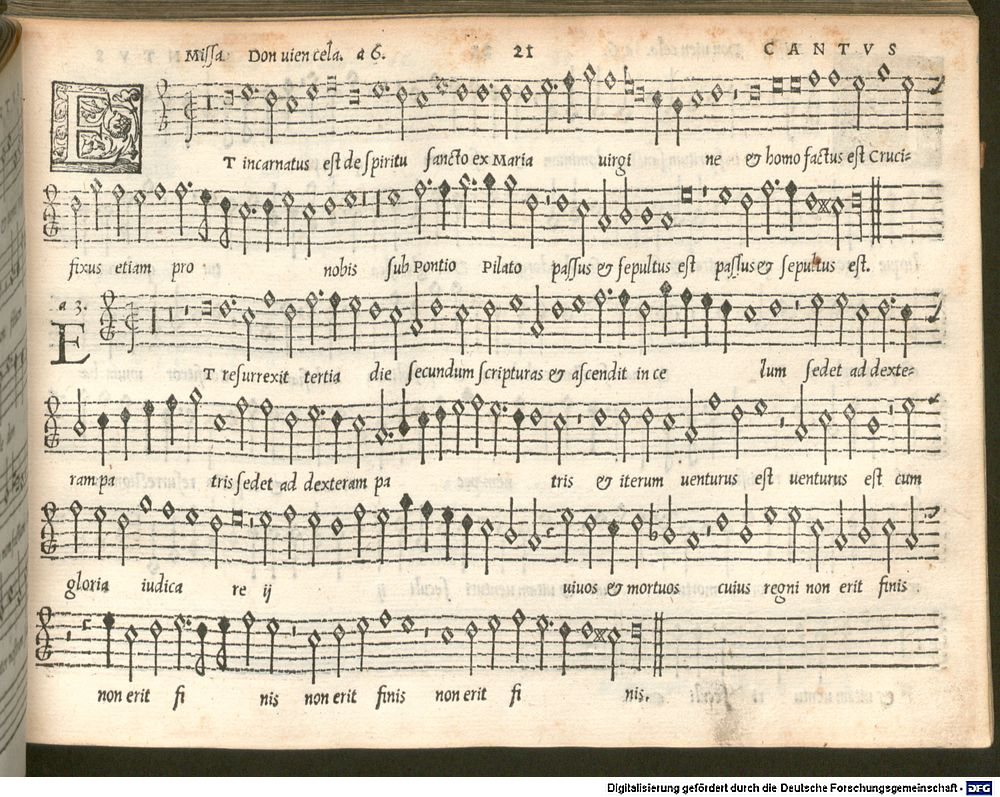 Missa Don uien cela. a 6. 21 CANTVS
ET incarnatus est de spiritu sancto ex Maria uirgi ne & homo factus est Cruci-
fixus etiam pro nobis sub Pontio Pilato passus & sepultus est passus & sepultus est.
a 3.
ET resurrexit tertia die secundum scripturas & ascendit in ce lum sedet ad dexte-
ram pa tris sedet ad dexteram pa tris & iterum uenturus est uenturus est cum
gloria iudica re ij uiuos & mortuos cuius regni non erit finis
non erit fi nis non erit finis non erit fi nis.
Digitalisierung gefördert durch die Deutsche Forschungsgemeinschaft - DFG